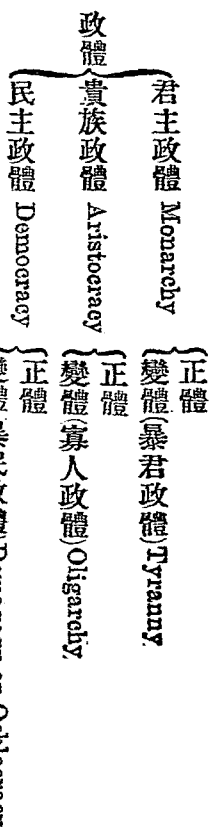 政體
君主政體 Monarchy
正體
變體(暴君政體)Tyranny.
貴族政體 Aristocracy
正體
變體(寡人政體)Oligarchy.
民主政體 Democracy
正體